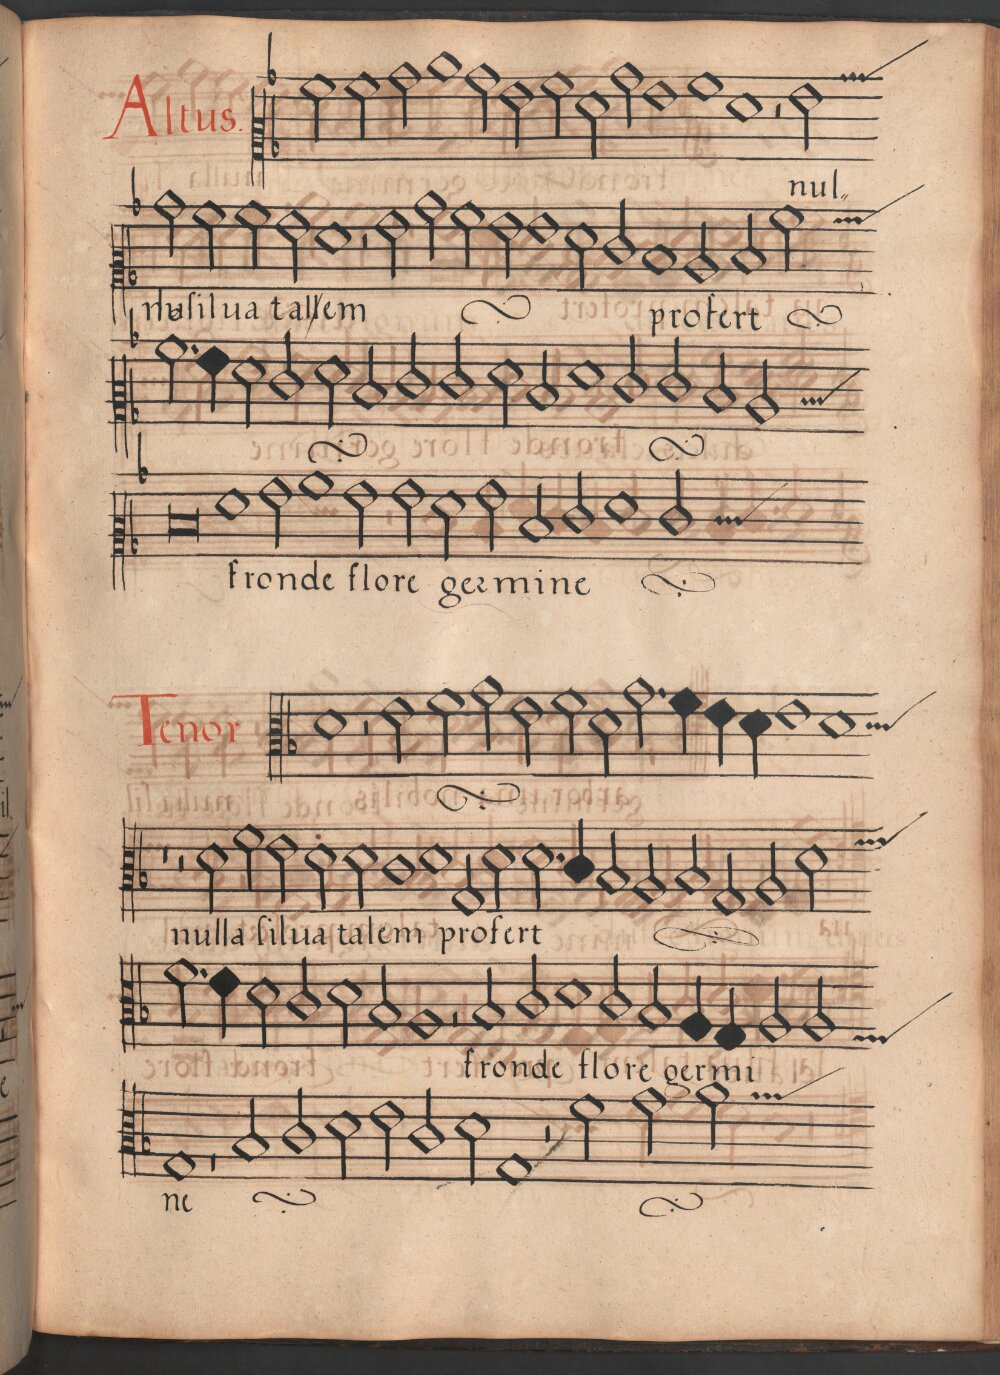 Altus.
nul
la silua talem profert
fronde flore germine
Tenor
nulla silua talem profert
fronde flore germi
ne